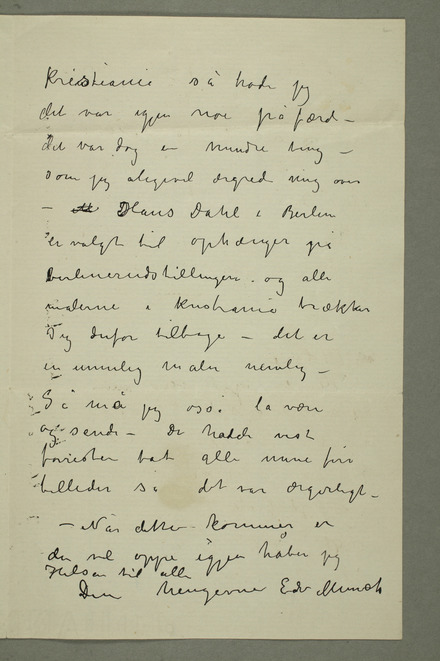 Kristiania så trode jeg
det var igjen noe på færd –
det var dog en mindre ting –
som jeg aligevel ærgred mig over
– Hans Dahl i Berlin
er valgt til ophænger på
berlinerudstillingen. og alle
malerne i Kristiania trækker
sig derfor tilbage – det er
en umulig maler nemlig –
Så må jeg også la være
at sende – De hadde vist
foresten tat alle mine fire
billeder så det var ærgerligt –
– Når dette kommer er
du vel oppe igjen håber jeg
Hilsen til alle
Din hengivne Edv Munch